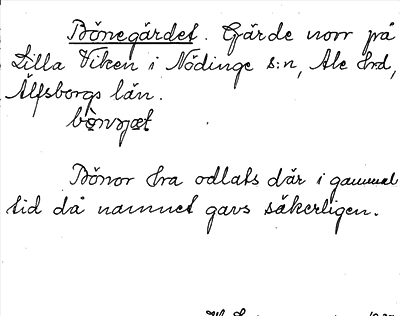 Bönegärdet. Gärde norr på
Lilla Viken i Nödinge s:n, Ale hrd,
Älfsborgs län.
Bönor hra odlats där i gammal
tid då namnet gavs säkerligen.